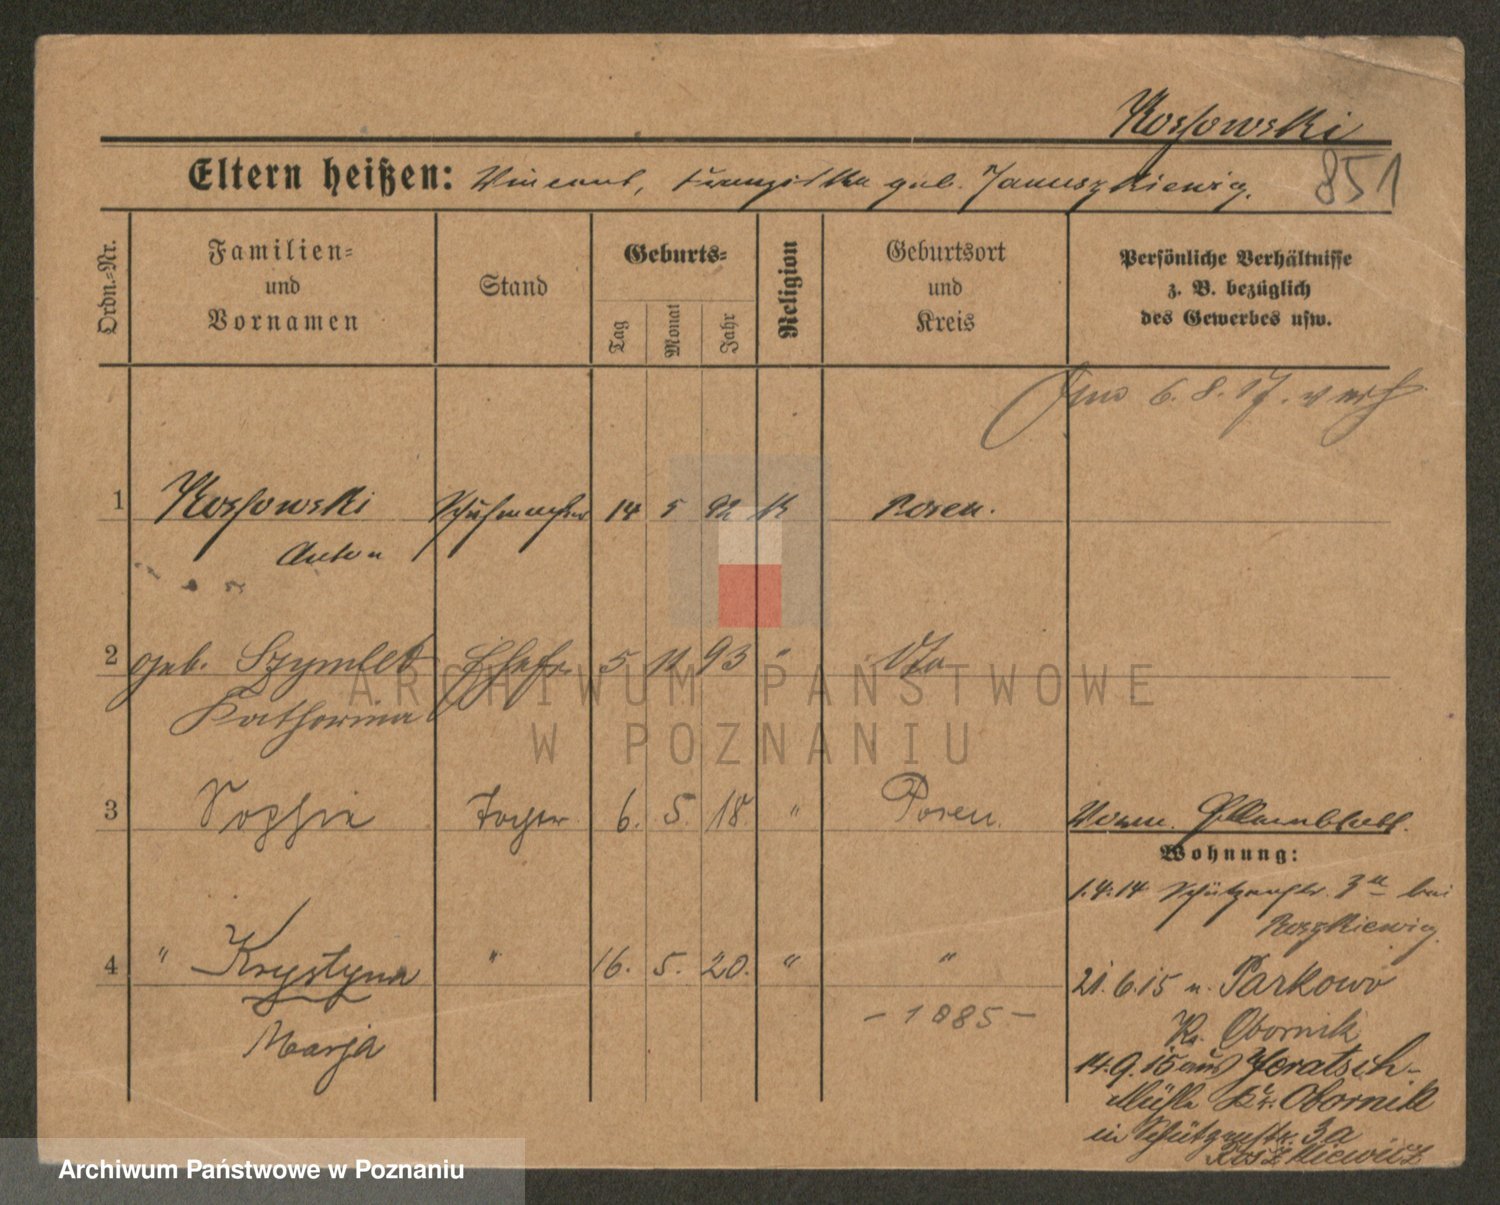 Kossowski
Eltern heißen: Vincent, Franziska geb. Januszkiewicz.
851
Ordn.-Nr.
Familien-
und
Vornamen
Stand
Geburts-
Tag
Monat
Jahr
Religion
Geburtsort
und
Kreis
Persönliche Verhältnisse
z. B. bezüglich
des Gewerbes usw.
6. 8. 17. verh
1 Kossowski Schuhmacher 14 5 92 K Posen.
Anton
2 geb. Szymlet Ehefr. 5 11 93 "
Katharina
3 Sophie Tochter 6. 5. 18 " Posen.
4 " Krystyna " 16. 5. 20. " "
Marja
- 1885 -
Wohnung:
1.4.14 Schützenstr. 3a bei
Roszkiewicz.
21.6.15 n. Parkowo
Kr. Obornik
14.9.15 aus Jeratsch-
Mühle Kr. Obornik
in Schützenstr. 3a
Roszkiewicz
ARCHIWUM PAŃSTWOWE
W POZNANIU
Archiwum Państwowe w Poznaniu